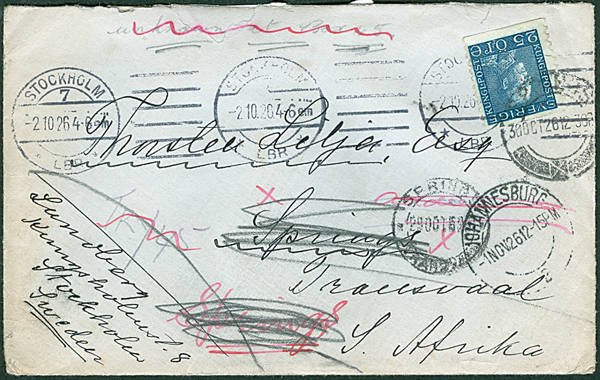 unknown at
25 ÖRE
SVERIGE
STOCKHOLM
7
-2.10.26.4-6 em
LBR
STOCKHOLM
-2.10.26.4-6 em
LBR
2.10.26
LBR
30 OCT 26 12
Thorsten Lilja, Esq
SPRINGS
29 OCT
JOHANNESBURG
-1 NOV 26 12-15PM
Springs
Transvaal
S. Afrika
Springs
Lundberg
Kungsholmst. 8
Stockholm
Sweden